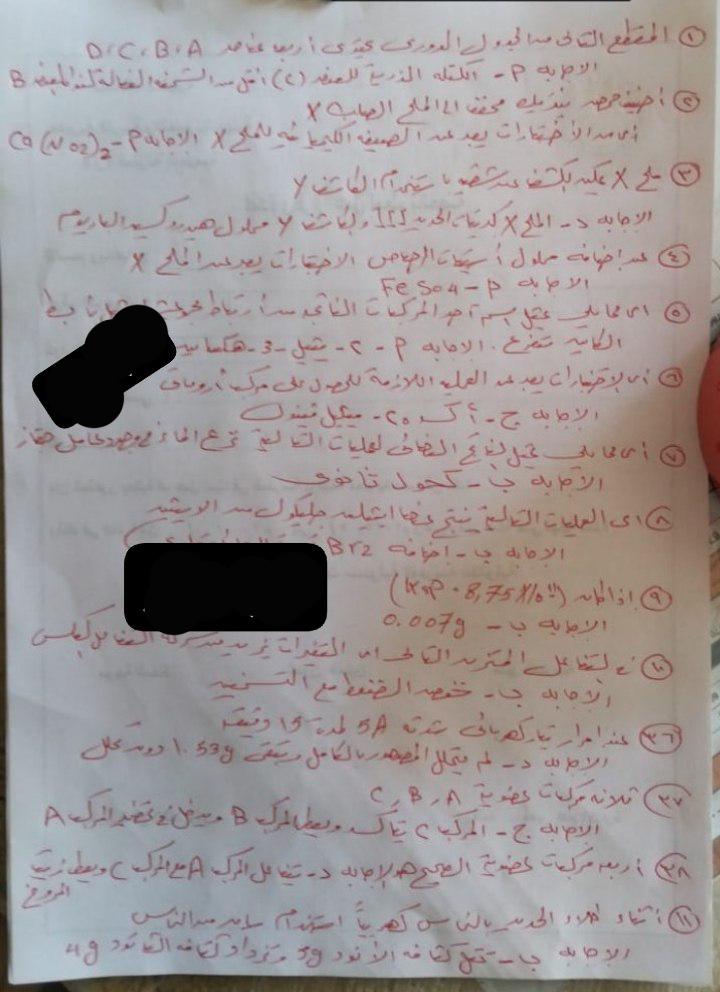 ① المقطع التالى من الجدول الدورى يحتوى أربعة عناصر D، C، B، A
الاجابه P - الكتله الذرية للعنصر (C) أقل من الشحنه الفعالة لنواة العنصر B
② أضيف حمض مخفف الى الملح الصلب X
أى من الأختيارات يعد عن الصيغه الكيميائيه للملح X الاجابه P - Ca(NO2)2
③ ملح X يمكن الكشف عن شقيه باستخدام الكاشف Y
الاجابه د - الملح X كبريتات الحديد III والكاشف Y محلول هيدروكسيد الباريوم
④ عند اضافه محلول أسيتات الرصاص الاختيارات يعد عن الملح X
الاجابه P - FeSO4
⑤ اى مما يلى يمثل اسم أحد المركبات الناتجه من أرتباط مجموعة
الكانيه تتفرع. الاجابه P - ٢ - ميثيل - 3 - هكسا
⑥ أى الاختيارات يعد عن العمليه اللازمة للحصول على مركب أروماتى
الاجابه ج - أكسده - ميثيل فينول
⑦ أى مما يلى يمثل الناتج النهائى لعمليات التاليه نزع الماء فى وجود عامل حفاز
الاجابه ب - كحول ثانوى
⑧ اى العمليات التاليه ينتج عنها ايثيلين جليكول من الايثين
الاجابه ب - اضافه Br2
⑨ إذا كان (Ksp = 8,75X10
الاجابه ب - 0.007g
⑩ فى التفاعل المتزن التالى اى التغيرات يزيد من سرعة التفاعل العكسى
الاجابه ب - خفض الضغط مع التسخين
③٦ عند امرار تيار كهربائى شدته 5A لمدة 15 دقيقه
الاجابه د - لم يتحلل المصهور بالكامل ويتبقى 1.53g دون تحلل
③٧ ثلاثه مركبات عضوية C، B، A
الاجابه ج - المركب C يتأكسد ويعطى المركب B ويدخل فى تحضير المركب A
③٨ أربعه مركبات عضوية الصحيح هو الاجابه د - يتفاعل المركب A مع المركب C ويعطى زيت
المروخ
⑪ أثناء طلاء الحديد بالنحاس كهربياً استخدام ساق من النحاس
الاجابه ب - تقل كتله الأنود 5g وتزداد كتله الكاثود 4g